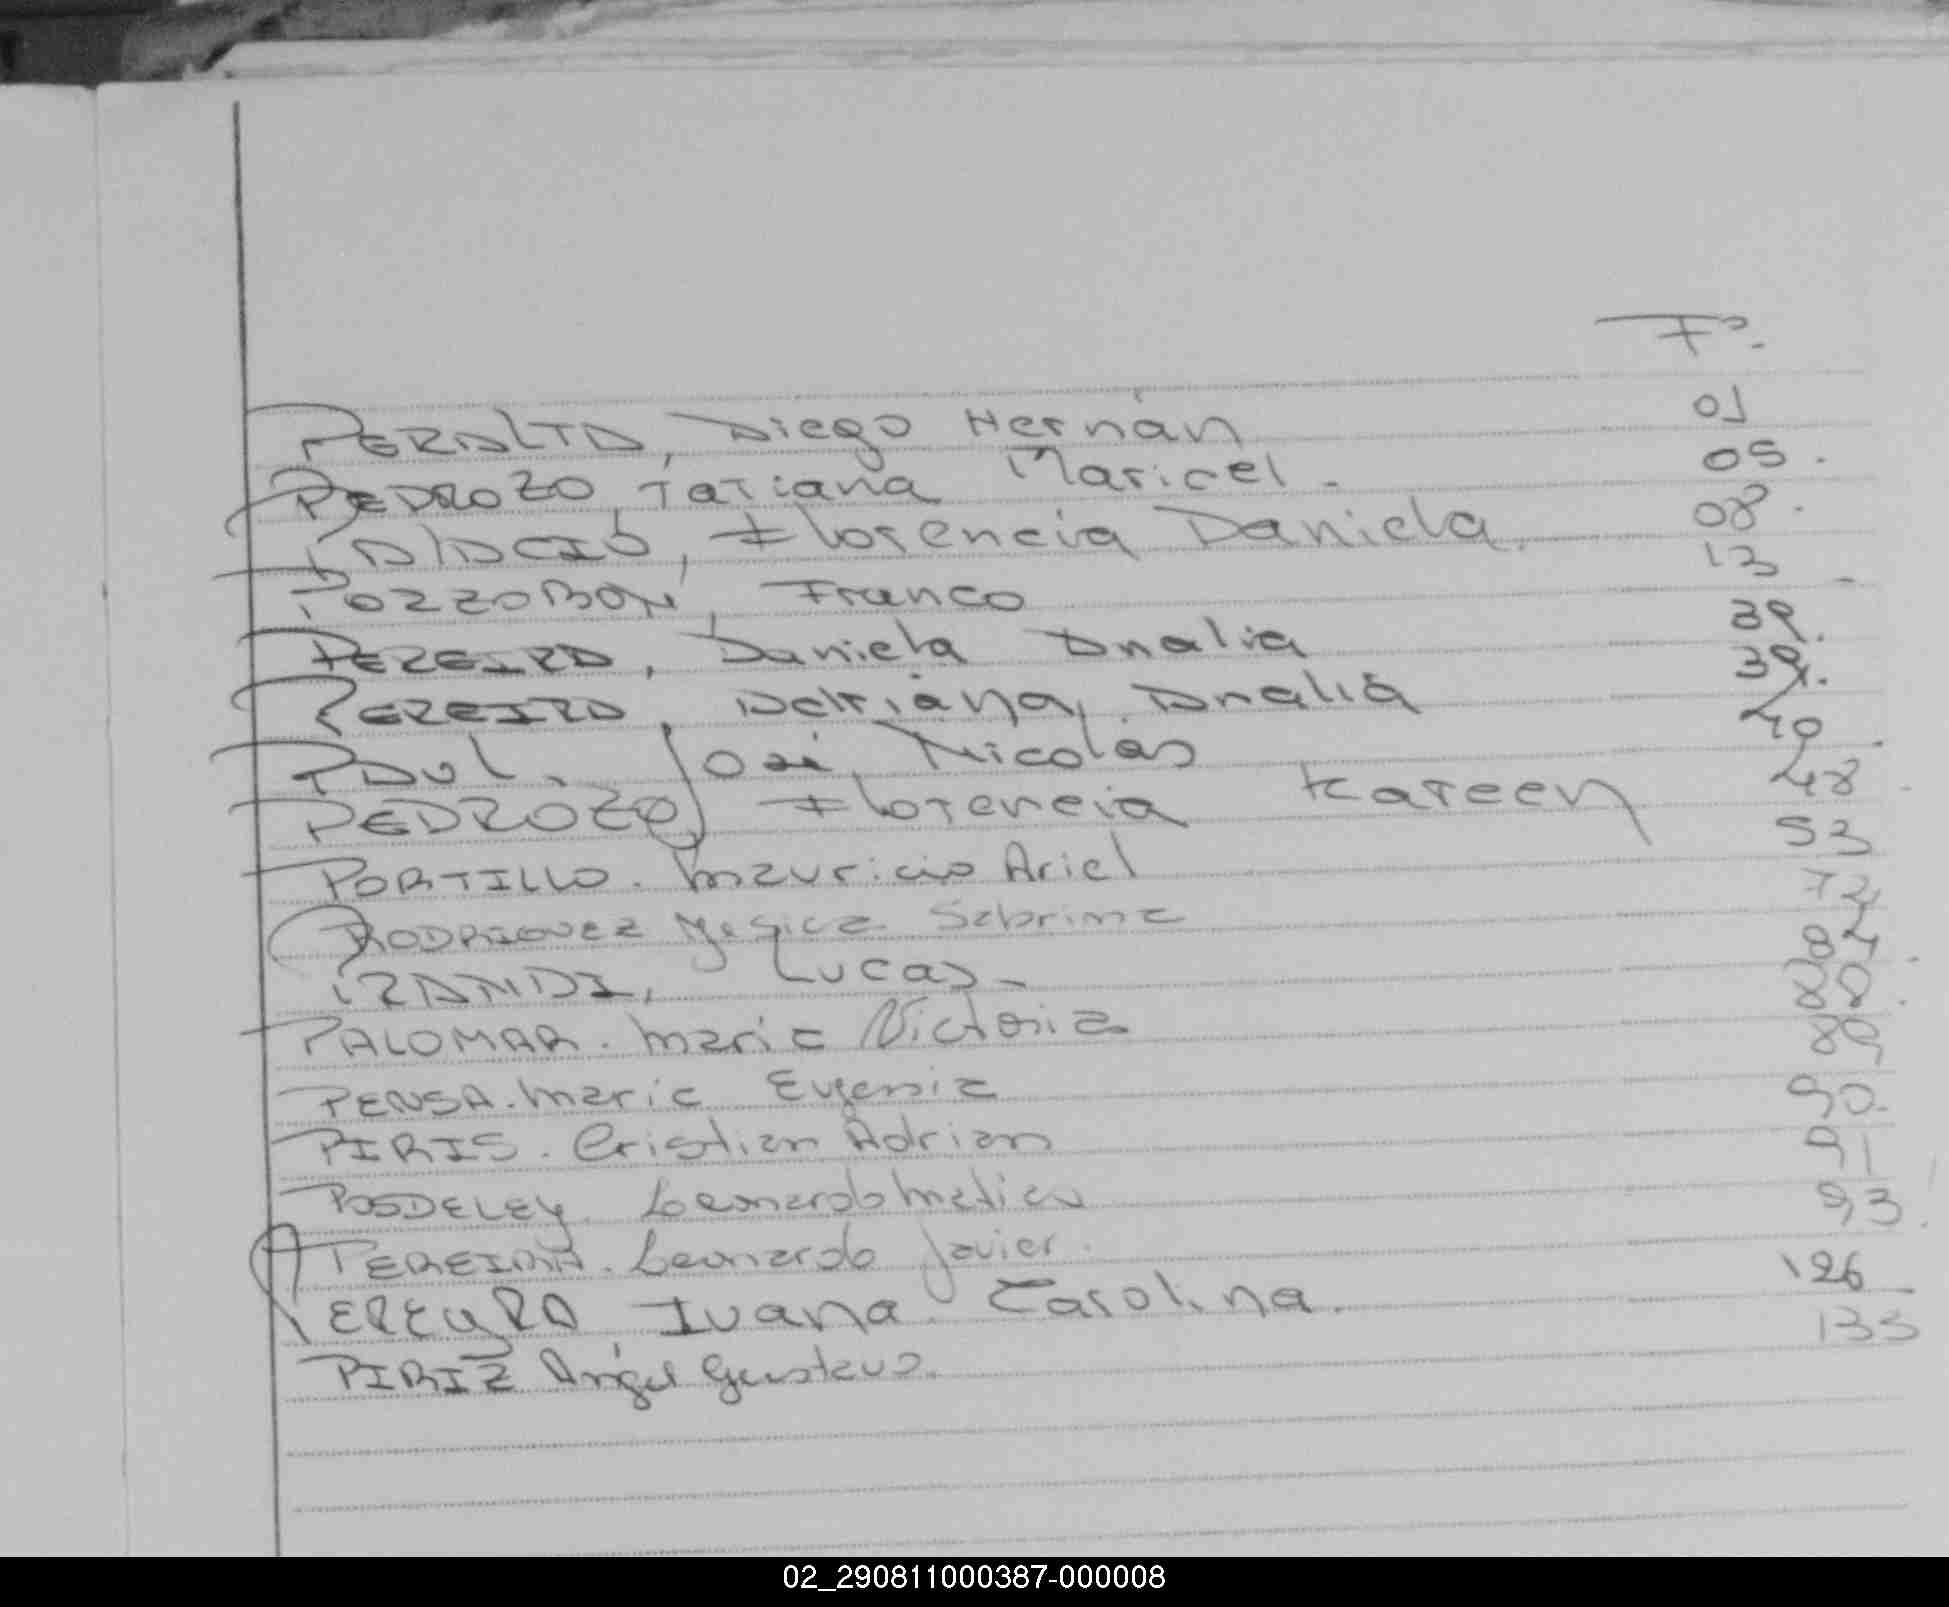 Fº.
PERALTA, Diego Hernán 01
PEDROZO, Tatiana Maricel. 05.
PALACIO, Florencia Daniela. 08.
POZZOBON, Franco 13
PEREIRA, Daniela Analia 39.
PEREIRA, Adriana, Analia 39.
PAUL, José Nicolas 40
PEDROZO, Florencia Kareen 48
PORTILLO. Mauricio Ariel 53
RODRIGUEZ Yesica Sabrina 72
PRANDI, Lucas 84
PALOMAR. Maria Victoria 88.
PENSA. Maria Eugenia 89
PIRIS. Cristian Adrian 90.
POSDELEY. Leonardo Matias 91
PEREIRA. Leonardo Javier. 93.
PEREYRA, Ivana Carolina. 126
PIRIZ Angel Gustavo. 133
02_290811000387-000008